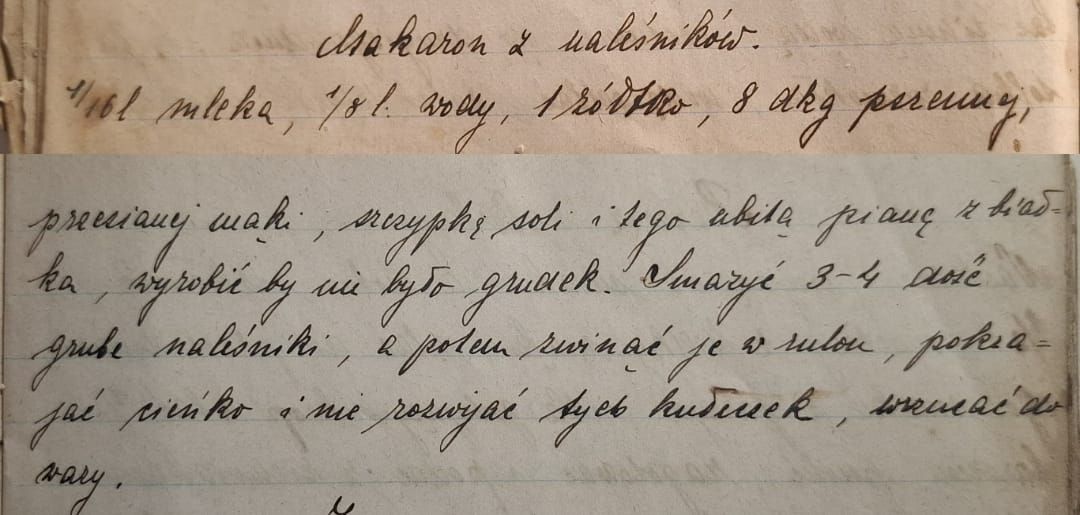 Makaron z naleśników.
1/16 l mleka, 1/8 l. wody, 1 żółtko, 8 dkg pszennej,
przesianej mąki, szczypkę soli i tego ubitą pianę z biał=
ka, wyrobić by nie było grudek. Smażyć 3-4 dość
grube naleśniki, a potem zwinąć je w rulon, pokra=
jać cieńko i nie rozwijać tych kułeczek, wrzucać do
wazy.